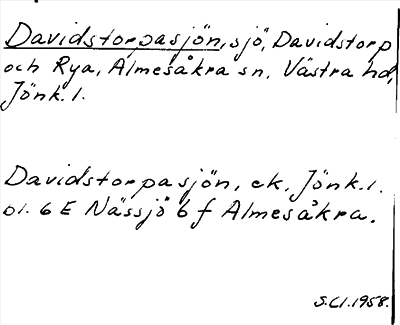 Davidstorpasjön, sjö, Davidstorp
och Rya, Almesåkra sn, Västra hd,
Jönk. l.
Davidstorpasjön, ek. Jönk. l.
bl. 6 E Nässjö 6 f Almesåkra.
S.Cl.1958.